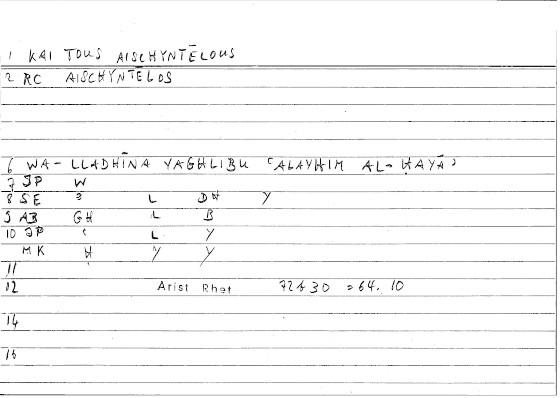 1 KAI TOUS AISCHYNTĒLOUS
2 RC AISCHYNTĒLOS
6 WA-LLADHĪNA YAGHLIBU ʿALAYHIM AL-ḤAYĀʾ
7 JP W
8 SE ʾ L DH Y
9 AB GH L B
10 JP ʿ L Y
MK Ḥ Y Y
11
12 Arist Rhet 72b30 = 64.10
14
16